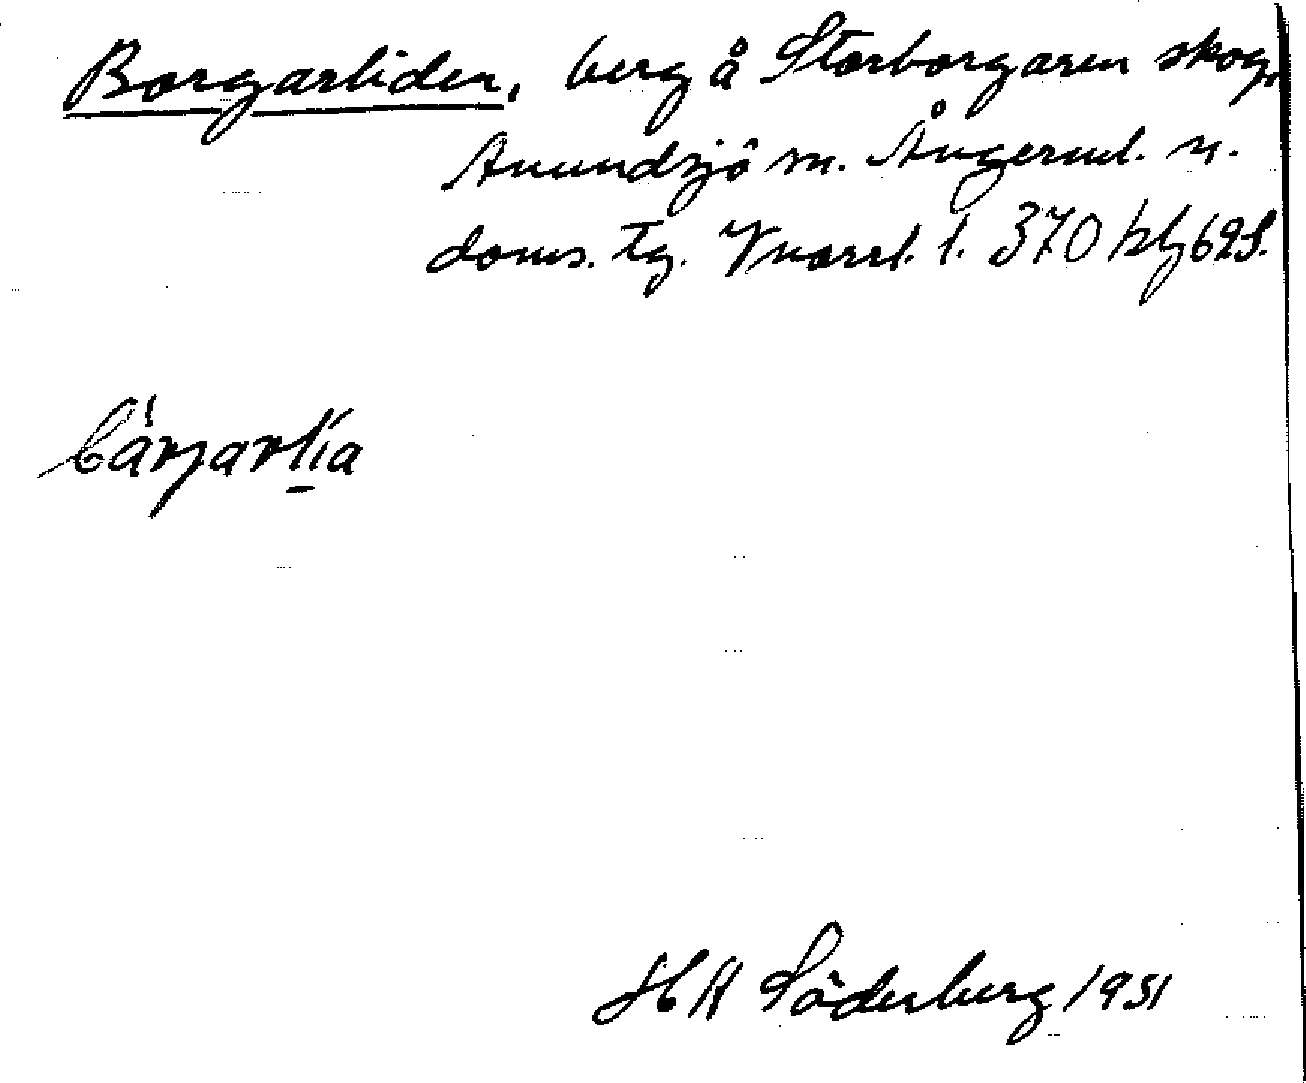 Borgarliden, berg å Storborgaren skog,
Anundsjö sn. Ångerml. n.
doms. tg. Vnorrl. l. 370 bl 62 S.
bårjarlia
H A Söderberg 1951